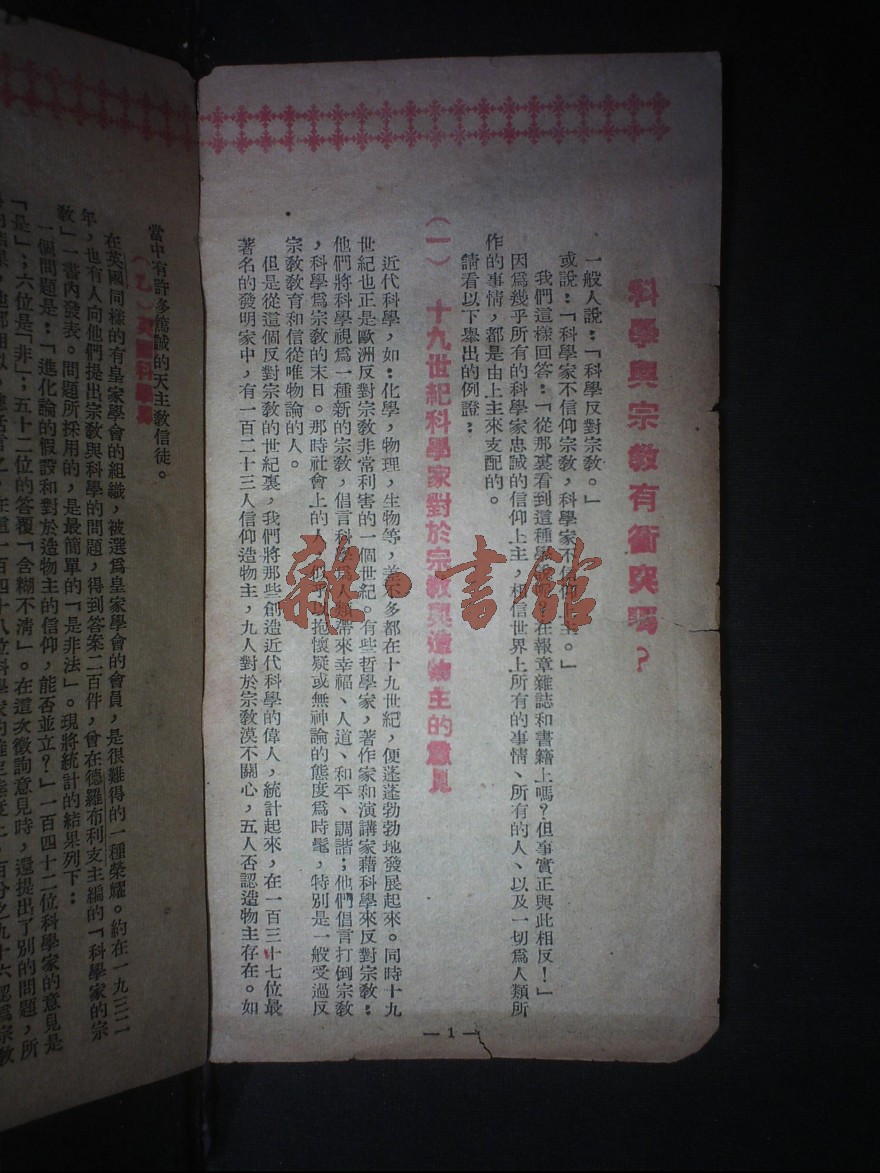 科學與宗教有衝突嗎？
一般人說：「科學反對宗教。」
或說：「科學家不信仰宗教，科學家不信仰 主。」
我們這樣回答：「從那裏看到這種學 在報章雜誌和書籍上嗎？但事實正與此相反！」
因爲幾乎所有的科學家忠誠的信仰上主，相信世界上所有的事情、所有的人、以及一切爲人類所
作的事情，都是由上主來支配的。
請看以下舉出的例證：
（一）十九世紀科學家對於宗教與造物主的意見
近代科學，如：化學，物理，生物等，差 多都在十九世紀，便蓬蓬勃勃地發展起來。同時十九
世紀也正是歐洲反對宗教非常利害的一個世紀。有些哲學家，著作家和演講家藉科學來反對宗教：
他們將科學視爲一種新的宗教，倡言科學爲人類帶來幸福、人道、和平、調諧；他們倡言打倒宗教
，科學爲宗教的末日。那時社會上的人 乎以抱懷疑或無神論的態度爲時髦，特別是一般受過反
宗教教育和信從唯物論的人。
但是從這個反對宗教的世紀裏，我們將那些創造近代科學的偉人，統計起來，在一百三十七位最
著名的發明家中，有一百二十三人信仰造物主，九人對於宗教漠不關心，五人否認造物主存在。如
— 1 —
當中有許多篤誠的天主教信徒。
（乙）英國科學界
在英國同樣的有皇家學會的組織，被選爲皇家學會的會員，是很難得的一種榮耀。約在一九三二
年，也有人向他們提出宗教與科學的問題，得到答案二百件，曾在德羅布利支主編的「科學家的宗
教」一書內發表。問題所採用的，是最簡單的「是非法」。現將統計的結果列下：
一個問題是：「進化論的假證和對於造物主的信仰，能否並立？」一百四十二位科學家的意見是
「是」；六位是「非」；五十二位的答覆「含糊不清」。在這次徵詢意見時，還提出了別的問題，所
雜·書館